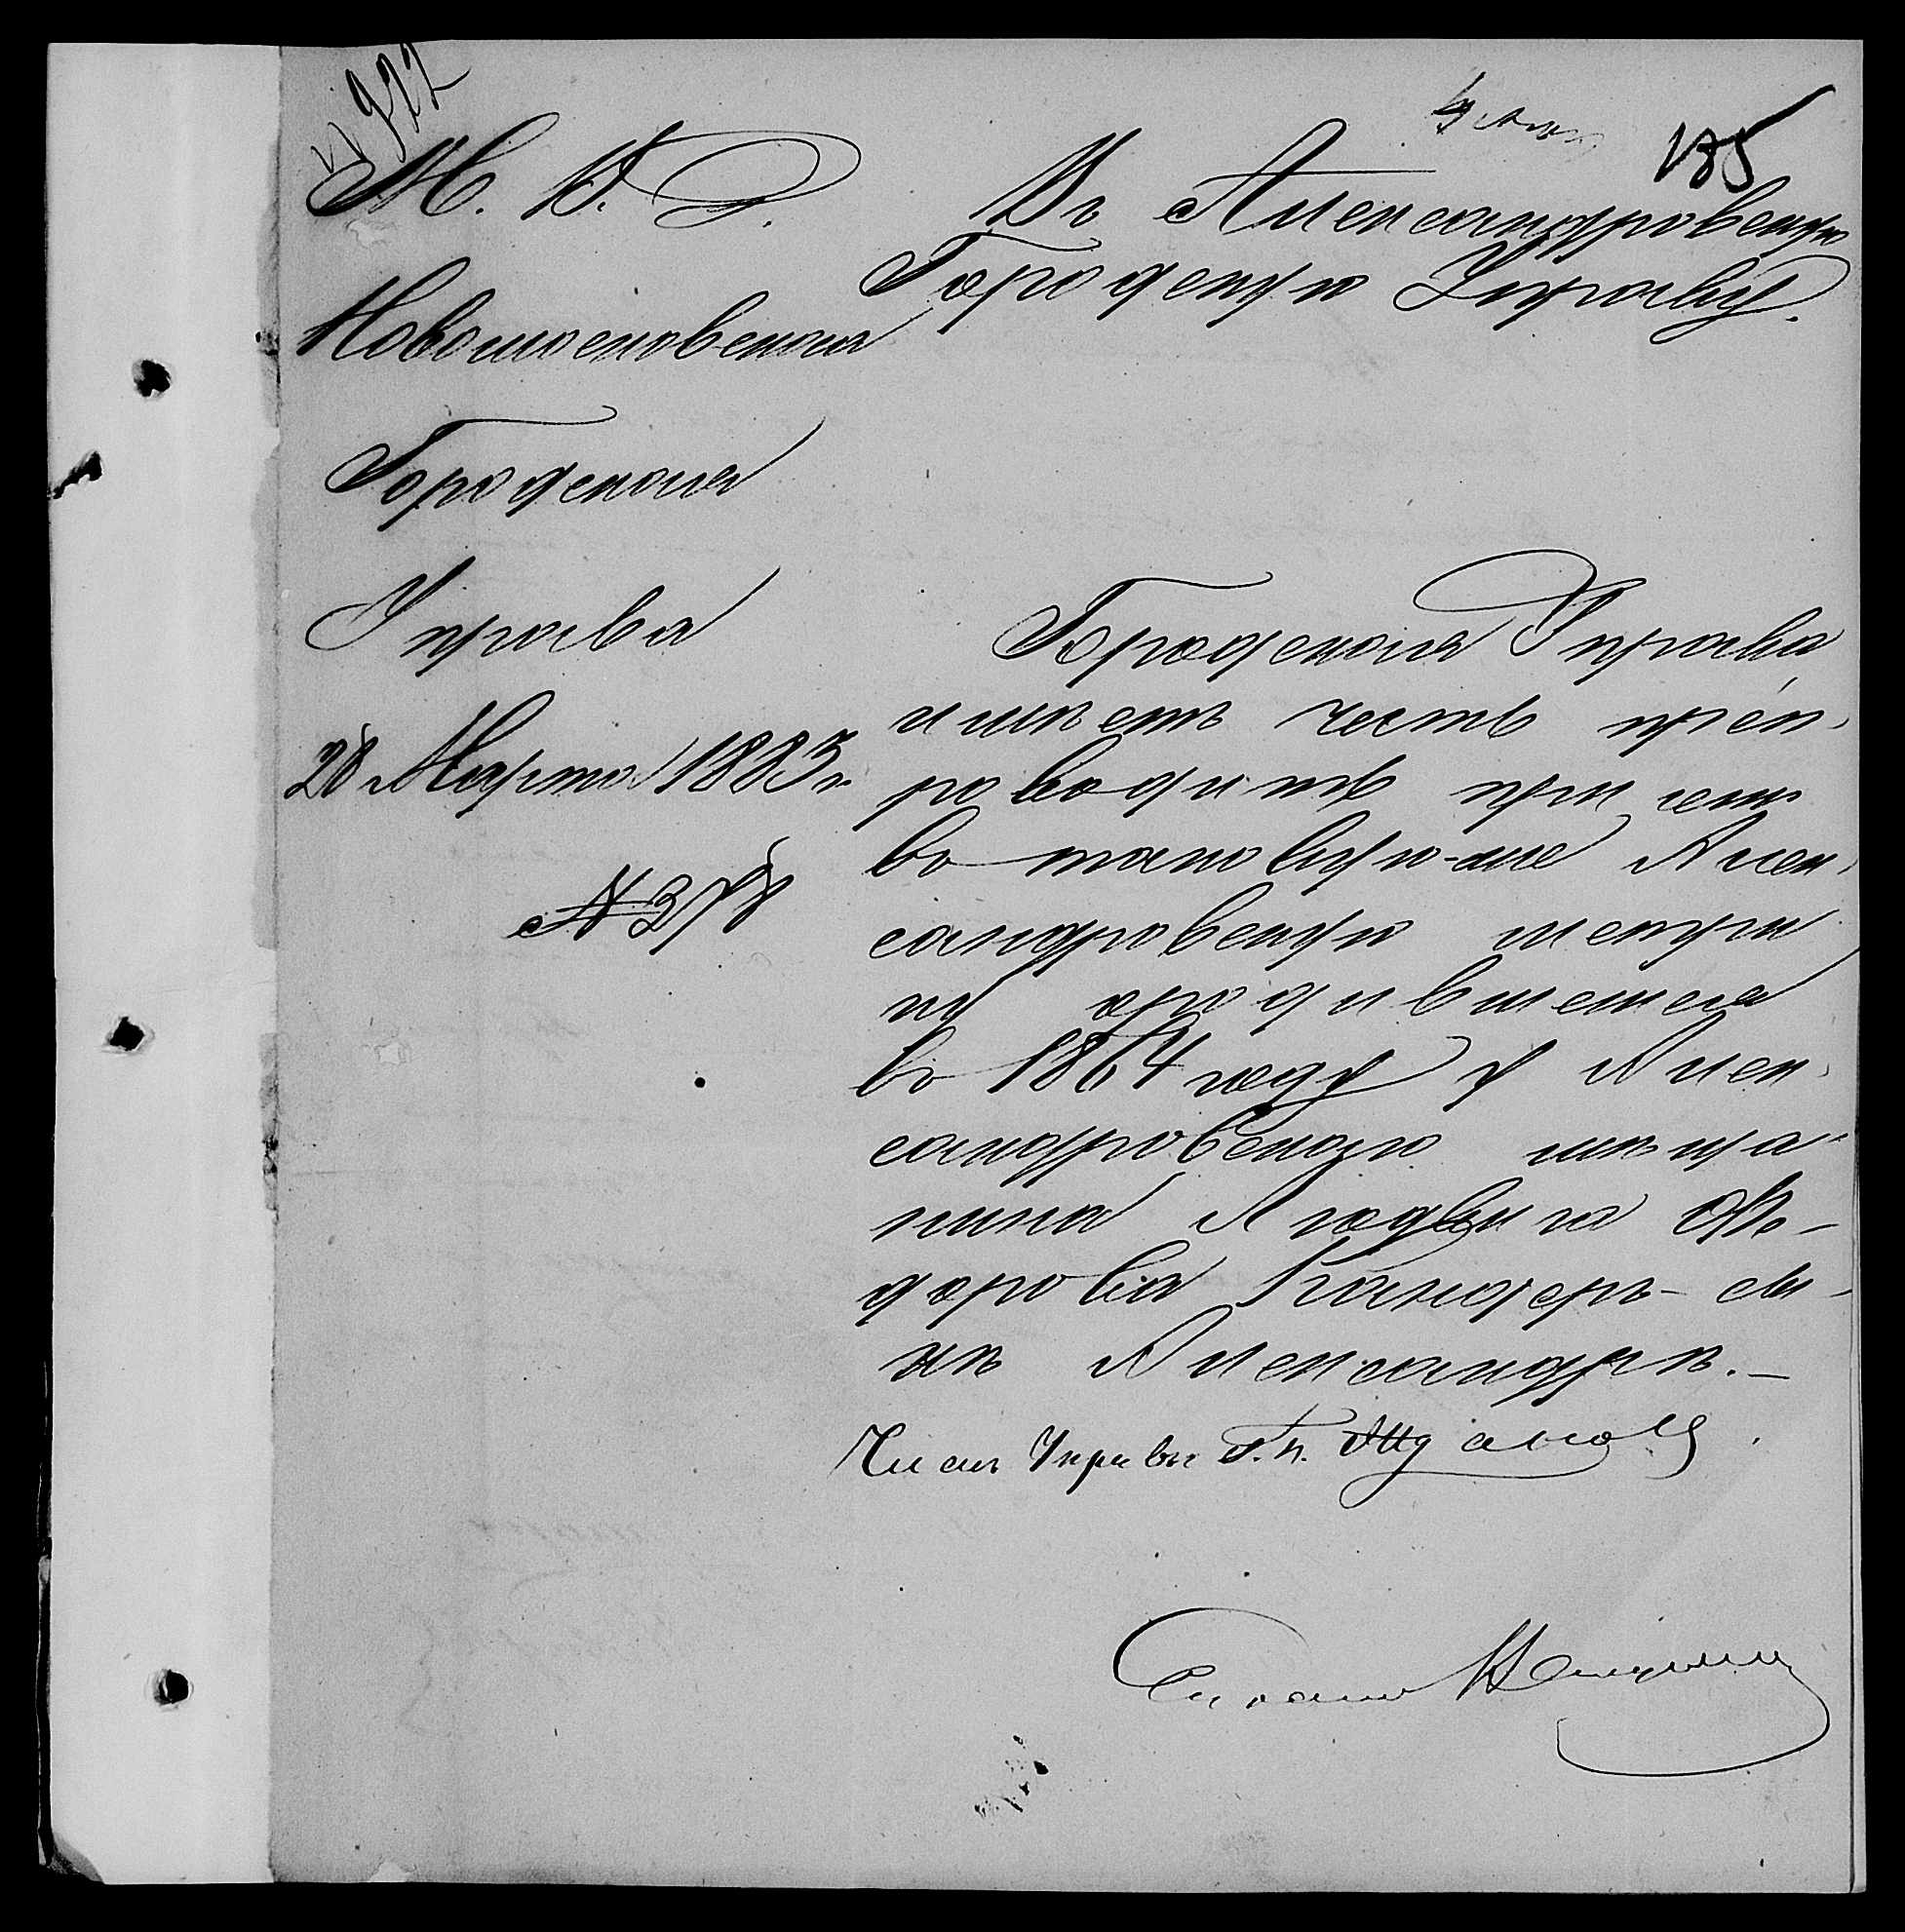 922
135
М. В. Д.
Новомосковская
Городская
Управа
28 Марта 1883 г.
№ 378
Въ Александровскую
Городскую Управу.
Городская Управа
имѣетъ честь преп-
роводить при семъ
въ таковую-же Алек-
сандровскую метри
ку о родившемся
въ 1864 году у Алек-
сандровскаго мѣща-
нина Людвига Фе-
дорова Кандеръ-сы-
нѣ Александрѣ.—
Членъ Управы